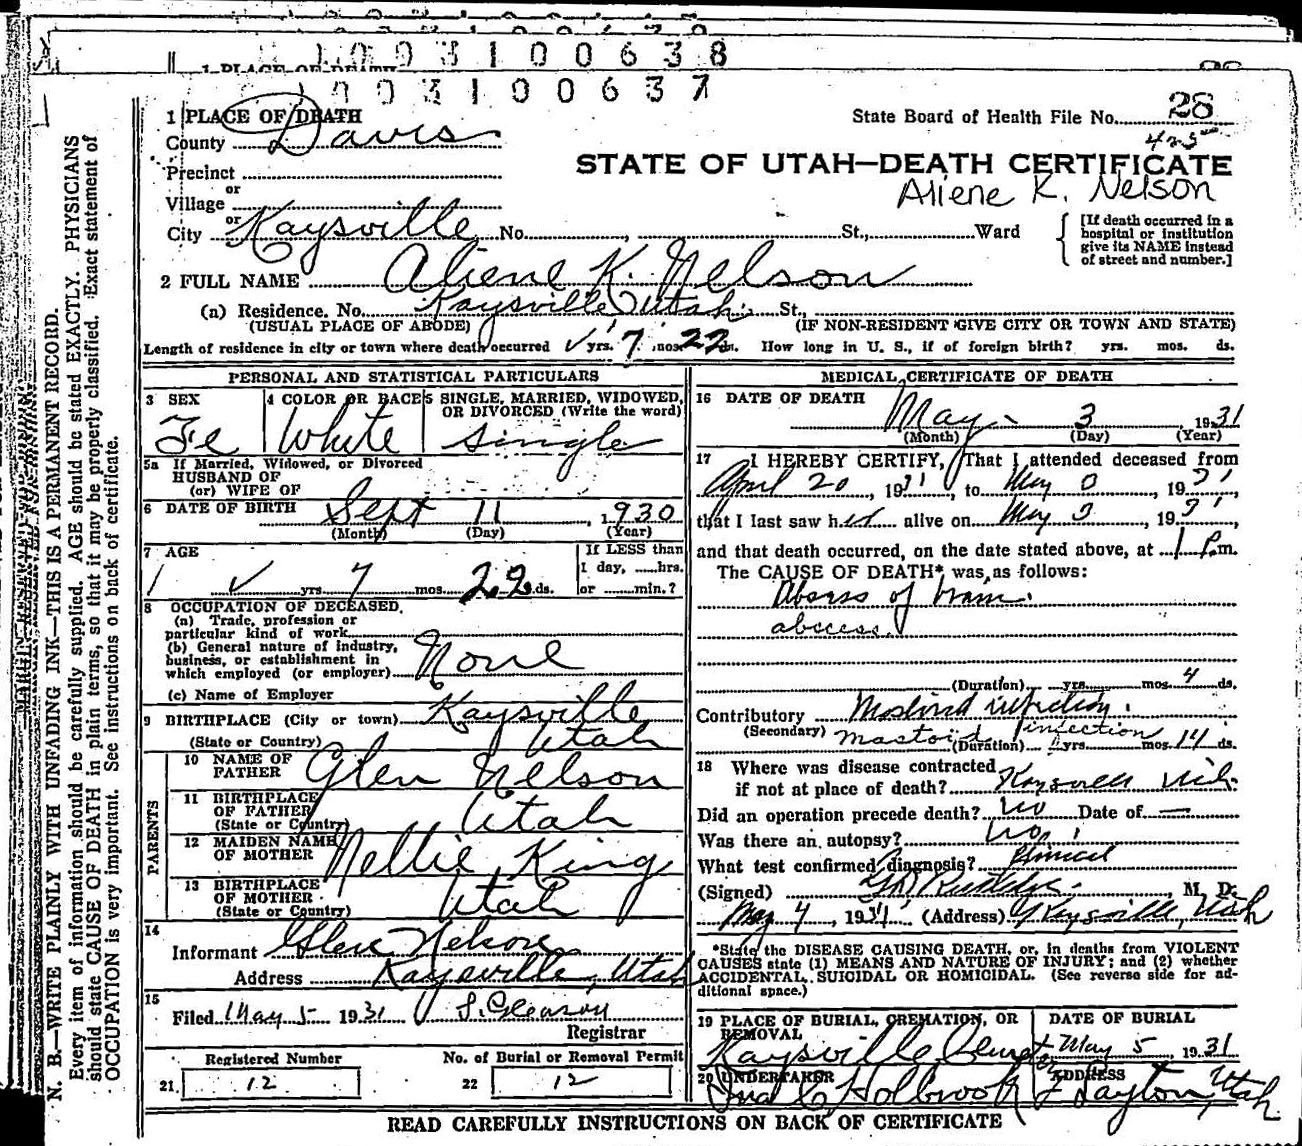 1 0 0 3 1 0 0 6 3 8
1 PLACE OF DEATH
1 0 0 3 1 0 0 6 3 7
1 PLACE OF DEATH
State Board of Health File No. 28
425
County Davis
STATE OF UTAH—DEATH CERTIFICATE
Precinct
Aliene K. Nelson
or
Village
or
City Kaysville No. , St., Ward
[If death occurred in a hospital or institution give its NAME instead of street and number.]
2 FULL NAME Aliene K. Nelson
(a) Residence. No. Kaysville Utah St.,
(USUAL PLACE OF ABODE) (IF NON-RESIDENT GIVE CITY OR TOWN AND STATE)
Length of residence in city or town where death occurred ✓ yrs. 7 mos. 22 ds. How long in U. S., if of foreign birth? yrs. mos. ds.
PERSONAL AND STATISTICAL PARTICULARS
3 SEX Fe
4 COLOR OR RACE White
5 SINGLE, MARRIED, WIDOWED, OR DIVORCED (Write the word) single
5a If Married, Widowed, or Divorced
HUSBAND OF
(or) WIFE OF
6 DATE OF BIRTH Sept 11, 1930
(Month) (Day) (Year)
7 AGE
✓ yrs. 7 mos. 22 ds.
If LESS than
1 day, ......hrs.
or ......min.?
8 OCCUPATION OF DECEASED,
(a) Trade, profession or
particular kind of work
(b) General nature of industry,
business, or establishment in
which employed (or employer) None
(c) Name of Employer
9 BIRTHPLACE (City or town) Kaysville
(State or Country) Utah
PARENTS
10 NAME OF FATHER Glen Nelson
11 BIRTHPLACE OF FATHER (State or Country) Utah
12 MAIDEN NAME OF MOTHER Nellie King
13 BIRTHPLACE OF MOTHER (State or Country) Utah
14
Informant Glen Nelson
Address Kaysville, Utah
15
Filed May 5 1931 S. Gleason
Registrar
Registered Number
21. 12
No. of Burial or Removal Permit
22 12
MEDICAL CERTIFICATE OF DEATH
16 DATE OF DEATH
May 3 1931
(Month) (Day) (Year)
17 I HEREBY CERTIFY, That I attended deceased from
April 20, 1931, to May 3, 1931,
that I last saw her alive on May 3, 1931,
and that death occurred, on the date stated above, at 1 P.m.
The CAUSE OF DEATH* was as follows:
Absess of brain.
abscess
(Duration) yrs. mos. 4 ds.
Contributory Mastoid infection.
(Secondary) mastoid infection
(Duration) yrs. mos. 14 ds.
18 Where was disease contracted
if not at place of death? Kaysville Utah.
Did an operation precede death? no Date of —
Was there an autopsy? no
What test confirmed diagnosis? Clinical
(Signed) , M. D.
May 4, 1931 (Address) Kaysville, Utah
*State the DISEASE CAUSING DEATH, or, in deaths from VIOLENT
CAUSES state (1) MEANS AND NATURE OF INJURY; and (2) whether
ACCIDENTAL, SUICIDAL OR HOMICIDAL. (See reverse side for ad-
ditional space.)
19 PLACE OF BURIAL, CREMATION, OR REMOVAL
Kaysville
DATE OF BURIAL
May 5, 1931
20 UNDERTAKER
Holbrook
ADDRESS
Layton, Utah
READ CAREFULLY INSTRUCTIONS ON BACK OF CERTIFICATE
MARGIN RESERVED FOR BINDING
N. B.—WRITE PLAINLY WITH UNFADING INK—THIS IS A PERMANENT RECORD.
Every item of information should be carefully supplied. AGE should be stated EXACTLY. PHYSICIANS
should state CAUSE OF DEATH in plain terms, so that it may be properly classified. Exact statement of
OCCUPATION is very important. See instructions on back of certificate.